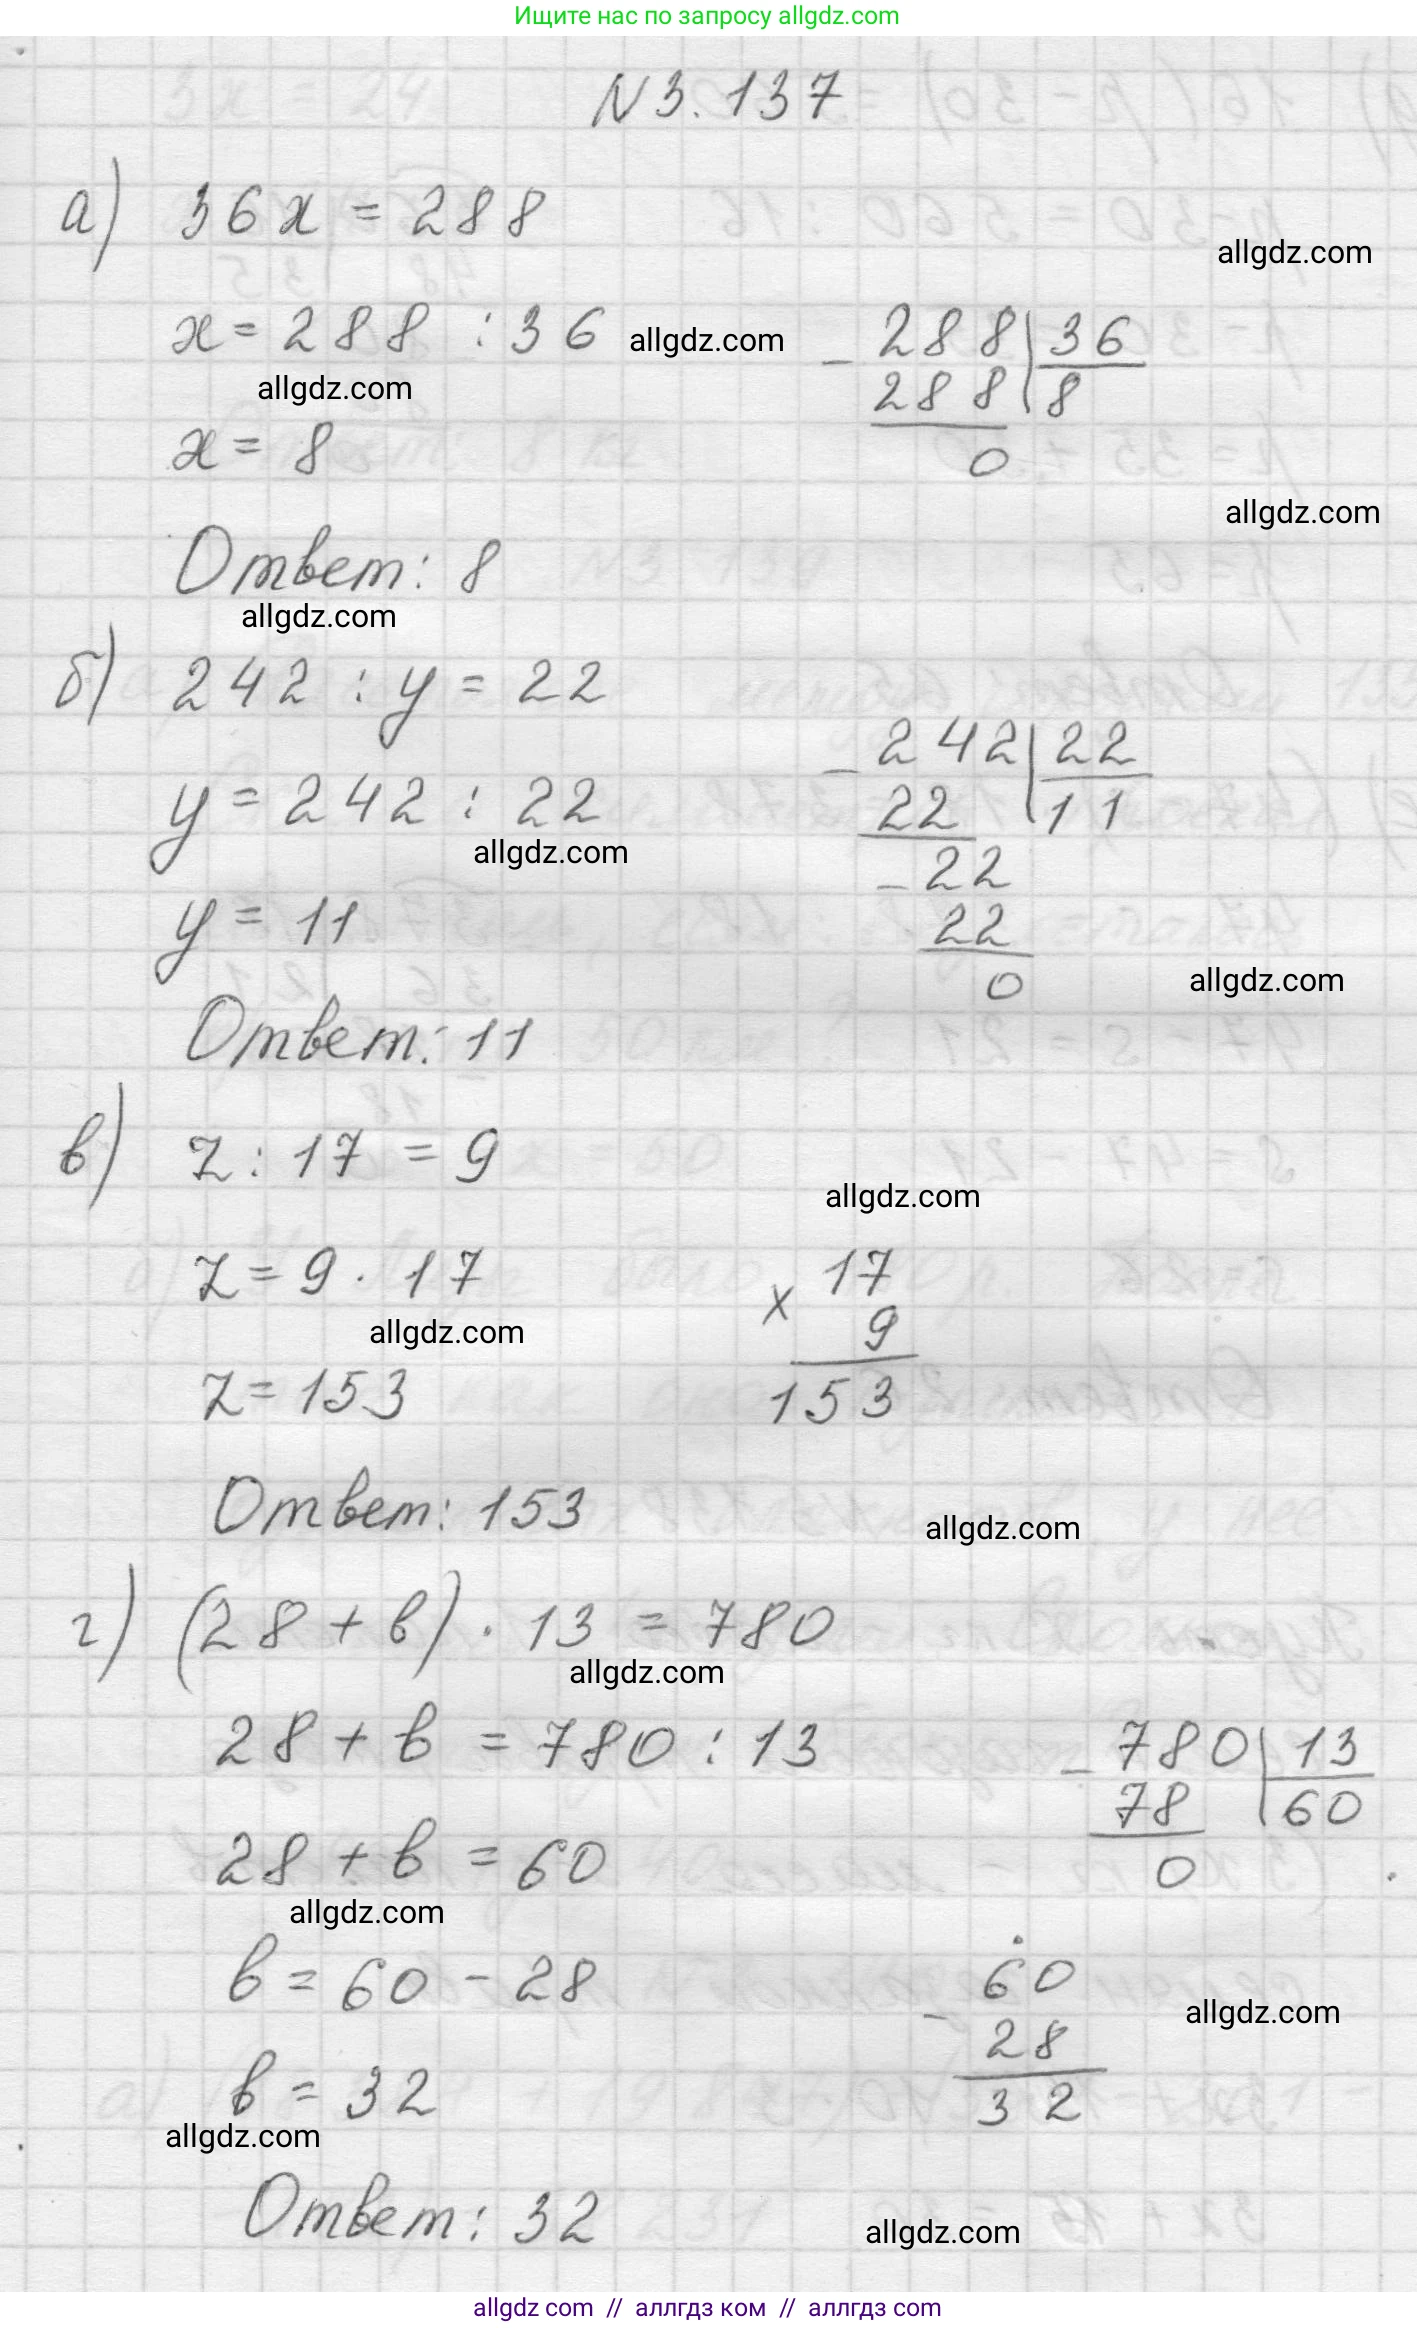 Ищите нас по запросу allgdz.com
N 3.137
а) 36x = 288
allgdz.com
x = 288 : 36
allgdz.com
288 | 36
allgdz.com
- 288 | 8
x = 8
0
allgdz.com
Ответ: 8
allgdz.com
б) 242 : y = 22
242 | 22
y = 242 : 22
- 22 | 11
allgdz.com
- 22
y = 11
22
0
allgdz.com
Ответ: 11
в) z : 17 = 9
allgdz.com
z = 9 · 17
17
allgdz.com
x 9
z = 153
153
Ответ: 153
allgdz.com
г) (28 + в) · 13 = 780
allgdz.com
28 + в = 780 : 13
780 | 13
- 78 | 60
28 + в = 60
0
allgdz.com
в = 60 - 28
60
allgdz.com
- 28
в = 32
32
allgdz.com
Ответ: 32
allgdz.com
allgdz com // аллгдз ком // аллгдз com